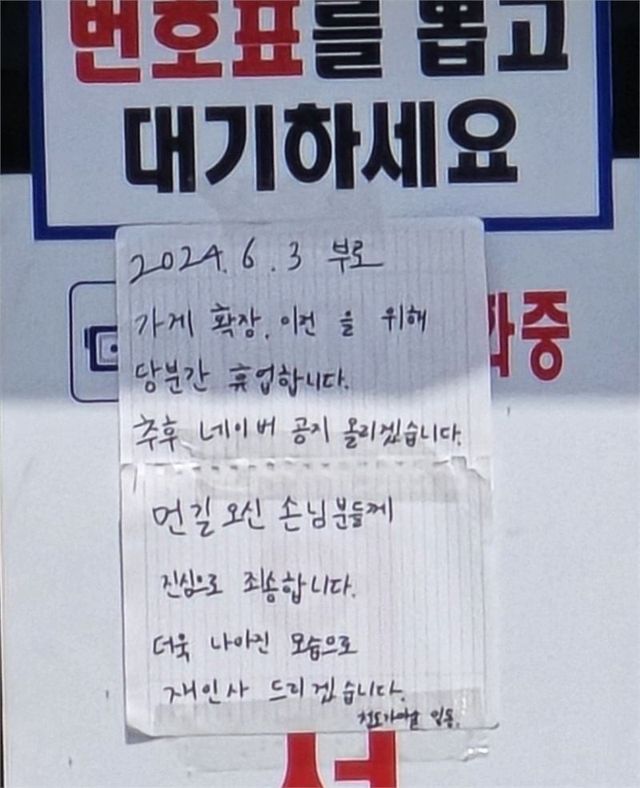 번호표를 뽑고
대기하세요
2024. 6. 3 부로
가게 확장, 이전 을 위해
당분간 휴업합니다.
추후 네이버 공지 올리겠습니다.
먼길 오신 손님분들께
진심으로 죄송합니다.
더욱 나아진 모습으로
재인사 드리겠습니다.
일동.
중